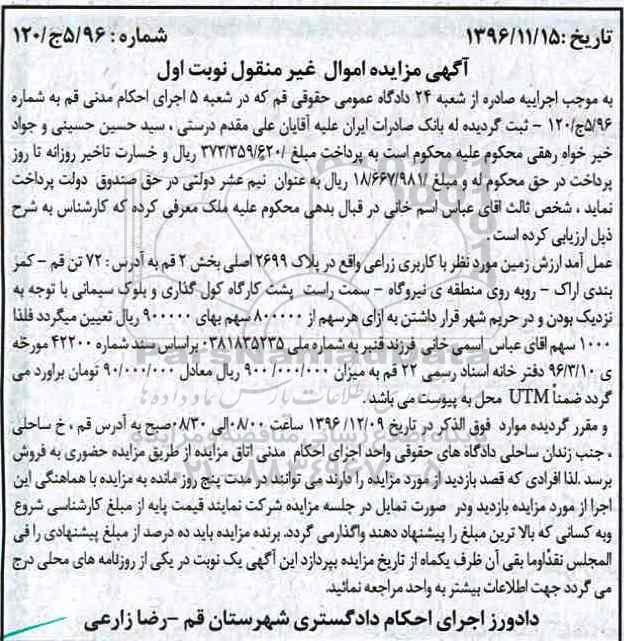 تاریخ :۱۳۹۶/۱۱/۱۵ شماره : ۱۲۰/ج۵/۹۶
آگهی مزایده اموال غیر منقول نوبت اول
به موجب اجراییه صادره از شعبه ۲۴ دادگاه عمومی حقوقی قم که در شعبه ۵ اجرای احکام مدنی قم به شماره
۱۲۰/ج۵/۹۶ – ثبت گردیده له بانک صادرات ایران علیه آقایان علی مقدم درستی ، سید حسین حسینی و جواد
خیر خواه رهقی محکوم علیه محکوم است به پرداخت مبلغ /۳۷۳/۳۵۹/۶۲۰ ریال و خسارت تاخیر روزانه تا روز
پرداخت در حق محکوم له و مبلغ /۱۸/۶۶۷/۹۸۱ ریال به عنوان نیم عشر دولتی در حق صندوق دولت پرداخت
نماید ، شخص ثالث اقای عباس اسم خانی در قبال بدهی محکوم علیه ملک معرفی کرده که کارشناس به شرح
ذیل ارزیابی کرده است .
عمل آمد ارزش زمین مورد نظر با کاربری زراعی واقع در پلاک ۲۶۹۹ اصلی بخش ۲ قم به آدرس : ۷۲ تن قم – کمر
بندی اراک – روبه روی منطقه ی نیروگاه – سمت راست پشت کارگاه کول گذاری و بلوک سیمانی با توجه به
نزدیک بودن و در حریم شهر قرار داشتن به ازای هرسهم از ۸۰۰۰۰۰ سهم بهای ۹۰۰۰۰۰ ریال تعیین میگردد فلذا
۱۰۰۰ سهم اقای عباس اسمی خانی فرزند قنبر به شماره ملی ۰۳۸۱۸۳۵۲۳۵ براساس سند شماره ۴۲۲۰۰ مورخه
ی ۹۶/۳/۱۰ دفتر خانه اسناد رسمی ۲۲ قم به میزان ۹۰۰/۰۰۰/۰۰۰ ریال معادل ۹۰/۰۰۰/۰۰۰ تومان براورد می
گردد ضمناً UTM محل به پیوست می باشد.
و مقرر گردیده موارد فوق الذکر در تاریخ ۱۳۹۶/۱۲/۰۹ ساعت ۰۸/۰۰الی ۰۸/۳۰صبح به آدرس قم ، خ ساحلی
، جنب زندان ساحلی دادگاه های حقوقی واحد اجرای احکام مدنی اتاق مزایده از طریق مزایده حضوری به فروش
برسد .لذا افرادی که قصد بازدید از مورد مزایده را دارند می توانند در مدت پنج روز مانده به مزایده با هماهنگی این
اجرا از مورد مزایده بازدید ودر صورت تمایل در جلسه مزایده شرکت نمایند قیمت پایه از مبلغ کارشناسی شروع
وبه کسانی که بالا ترین مبلغ را پیشنهاد دهند واگذارمی گردد. برنده مزایده باید ده درصد از مبلغ پیشنهادی را فی
المجلس نقداًوما بقی آن ظرف یکماه از تاریخ مزایده بپردازد این آگهی یک نوبت در یکی از روزنامه های محلی درج
می گردد جهت اطلاعات بیشتر به واحد مراجعه نمائید.
دادورز اجرای احکام دادگستری شهرستان قم –رضا زارعی